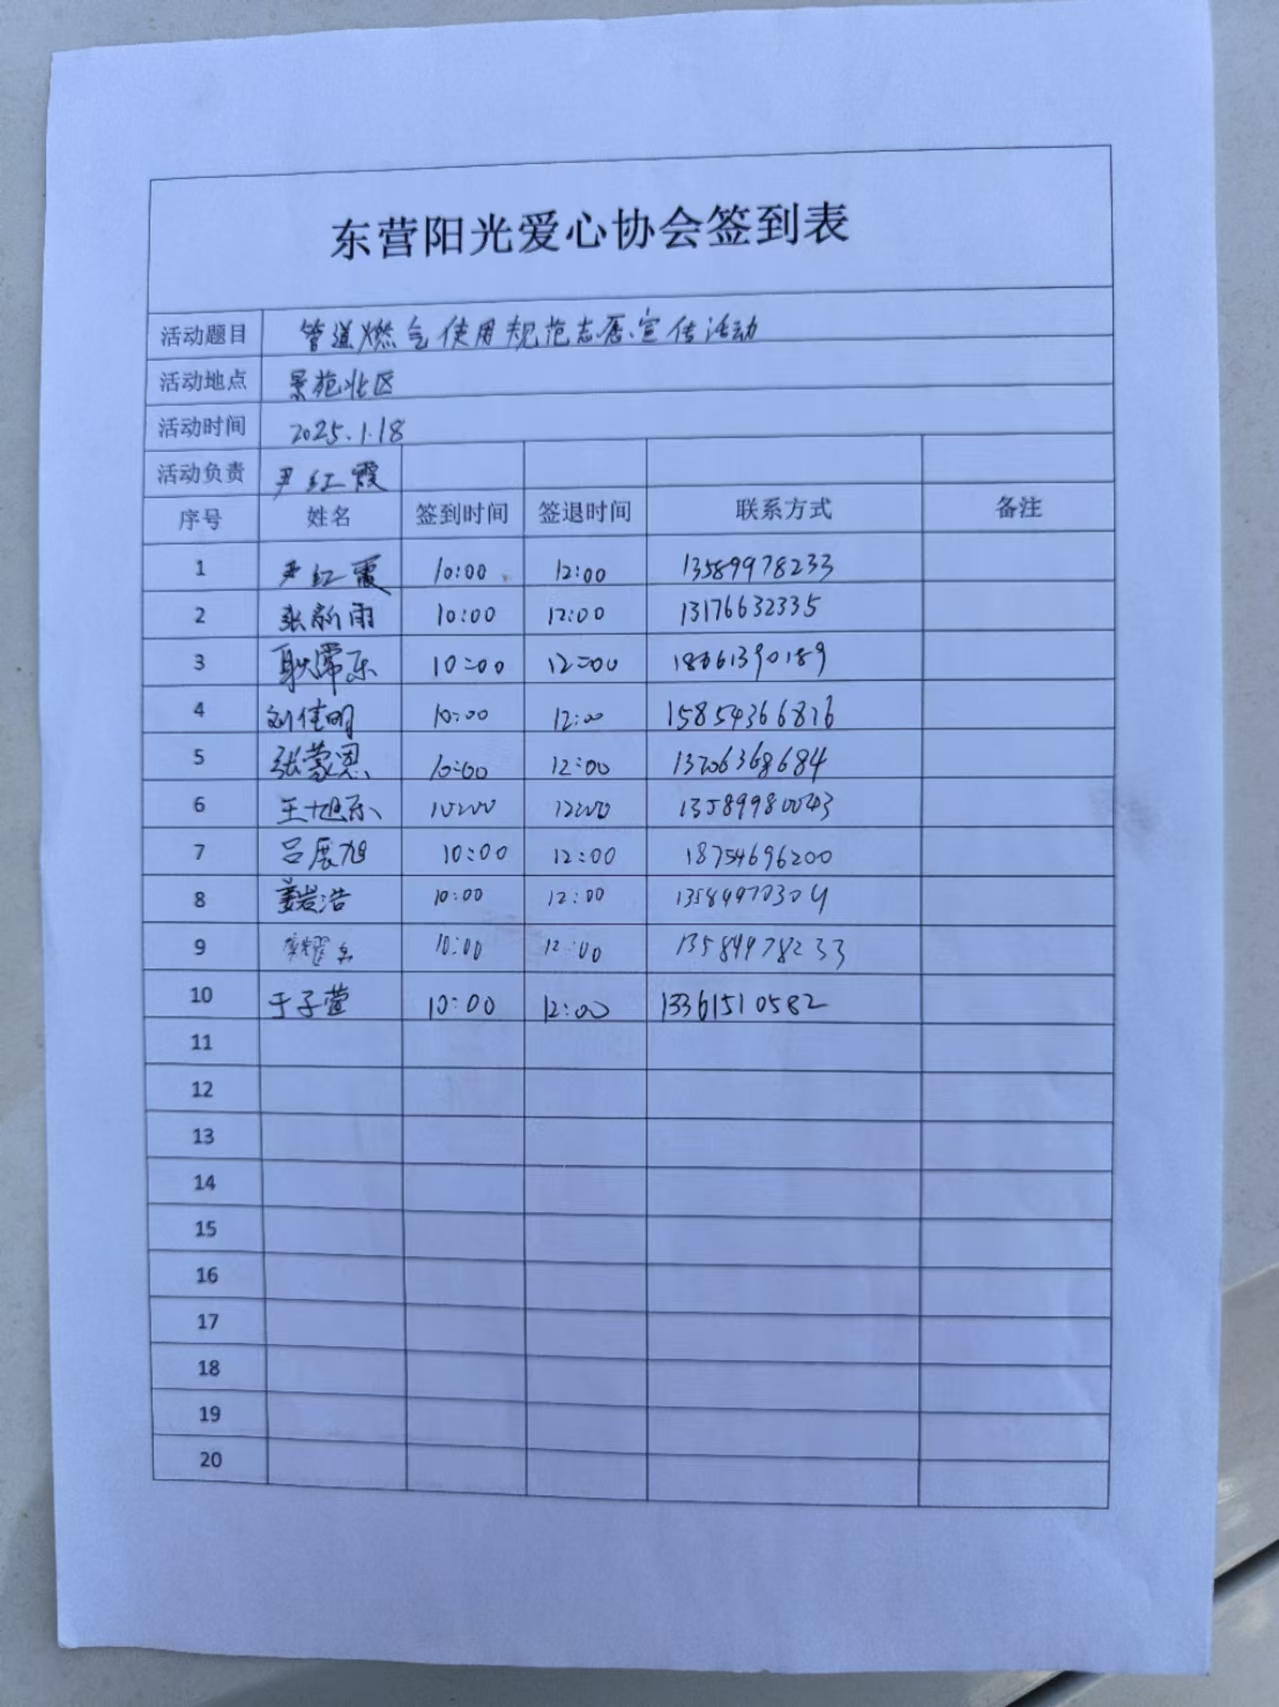 东营阳光爱心协会签到表
活动题目 管道燃气使用规范志愿宣传活动
活动地点 景苑北区
活动时间 2025.1.18
活动负责 尹红霞
序号 姓名 签到时间 签退时间 联系方式 备注
1 尹红霞 10:00 12:00 13589978233
2 张新雨 10:00 12:00 13176632335
3 10:00 12:00
4 刘佳明 10:00 12:00 15854366816
5 张蒙恩 10:00 12:00
6 王旭东 10:00 12:00 13589980043
7 吕展旭 10:00 12:00 18754696200
8 姜岩浩 10:00 12:00
9 10:00 12:00 13589978233
10 于子萱 10:00 12:00 13361510582
11
12
13
14
15
16
17
18
19
20